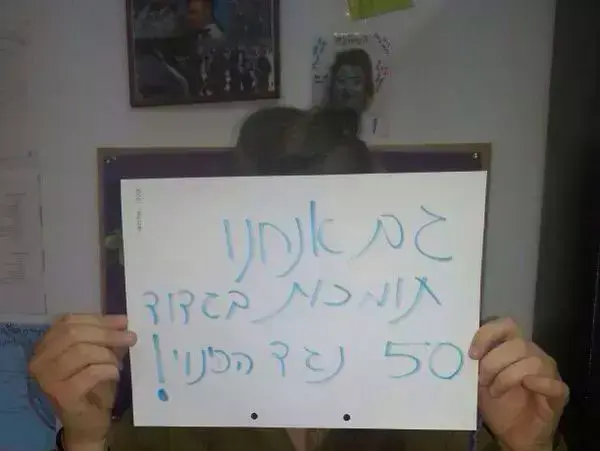 גם אנחנו
תומכות בגדוד
50 נגד הכינוי!